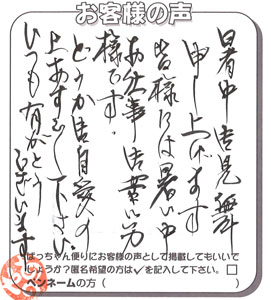 お客様の声
暑中お見舞
申し上げます
皆様には暑い中
お仕事御苦労
様です。
どうか御自愛の
上お過ごし下さい
いつも有がとう
ございます
ばっちゃん便りにお客様の声として掲載してもいいで
しょうか？匿名希望の方は✓を記入して下さい。□
ペンネームの方（　　　　　　　　　　）